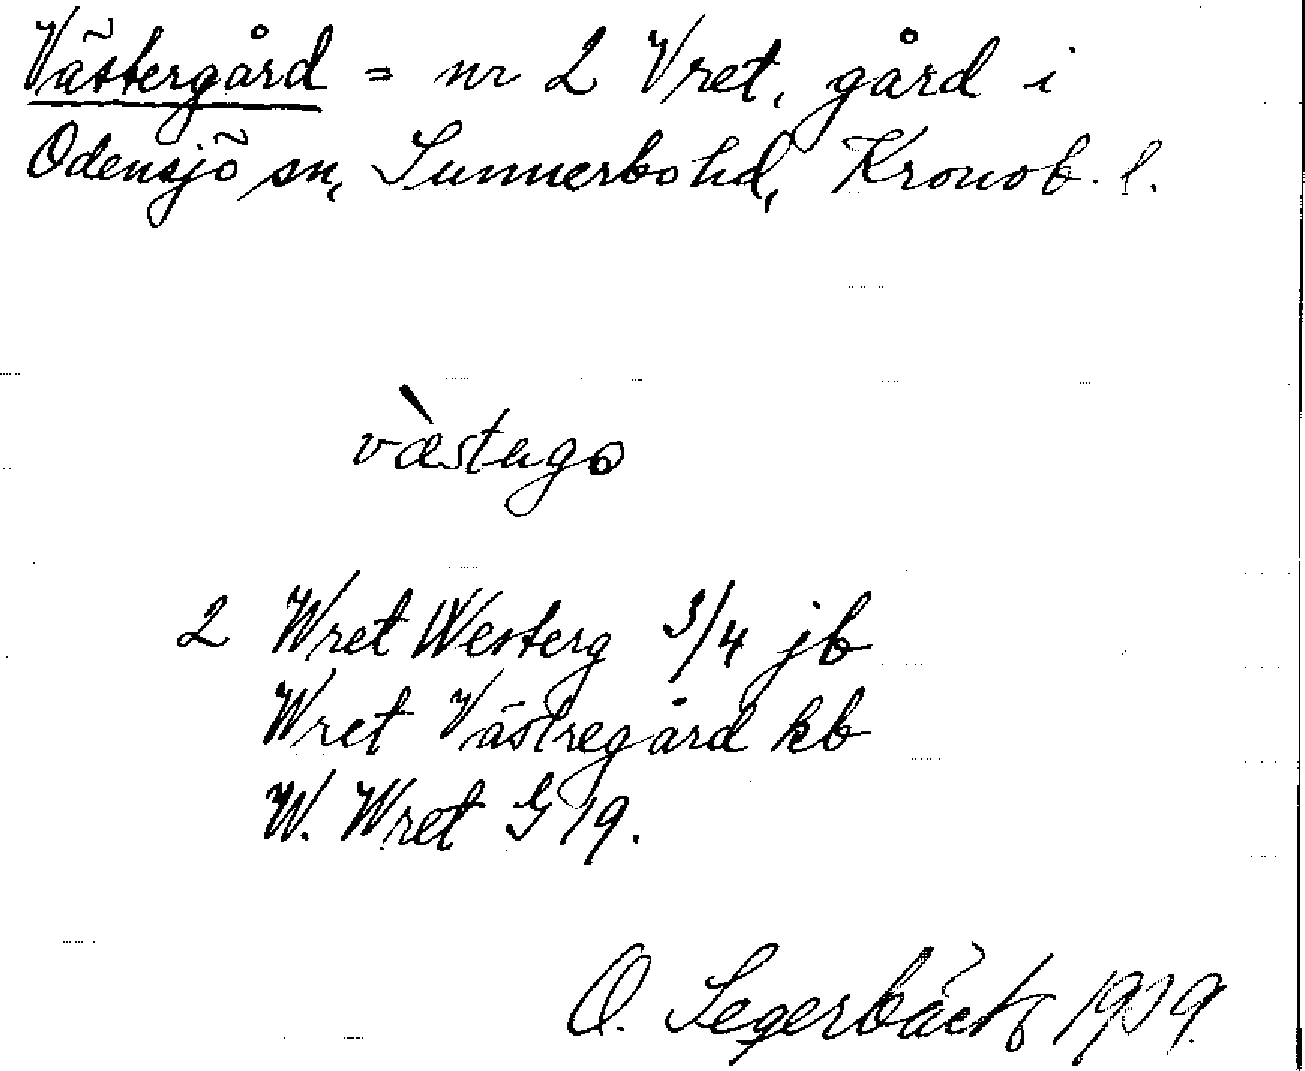 Västergård = nr 2 Vret, gård i
Odensjö sn, Sunnerbo hd, Kronob. l.
2 Wret Westerg 3/4 jb
Wret Västregård kb
W. Wret G 19.
O. Segerbäck 1919.